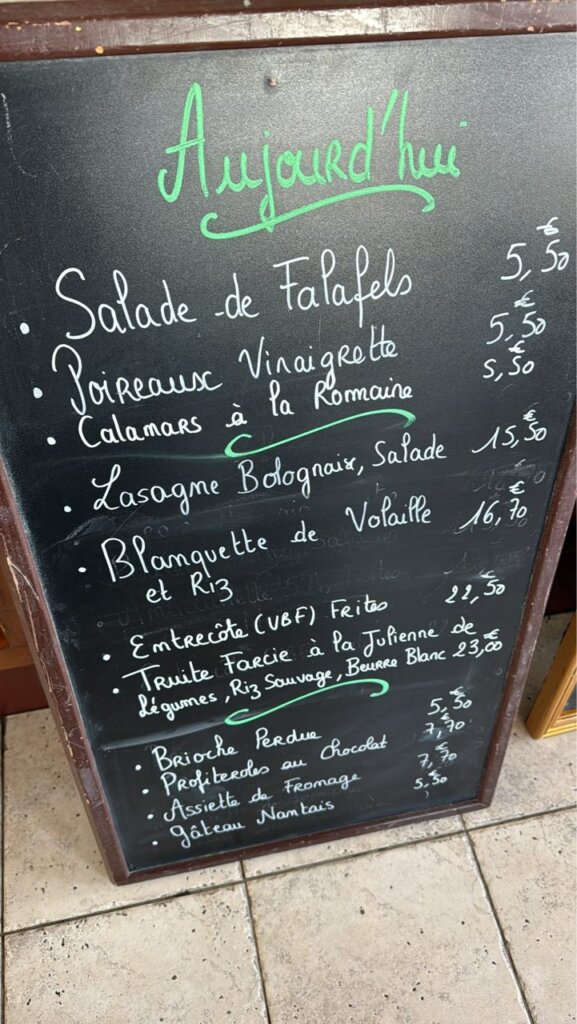 Aujourd'hui
• Salade de Falafels 5,50€
• Poireaux Vinaigrette 5,50€
• Calamars à la Romaine 5,50€
• Lasagne Bolognaise, Salade 15,50€
• Blanquette de Volaille 16,70€
et Riz
• Entrecôte (VBF) Frites 22,50€
• Truite Farcie à la Julienne de
Légumes, Riz Sauvage, Beurre Blanc 23,00€
• Brioche Perdue 5,50€
• Profiteroles au Chocolat 7,70€
• Assiette de Fromage 7,70€
• Gâteau Nantais 5,50€